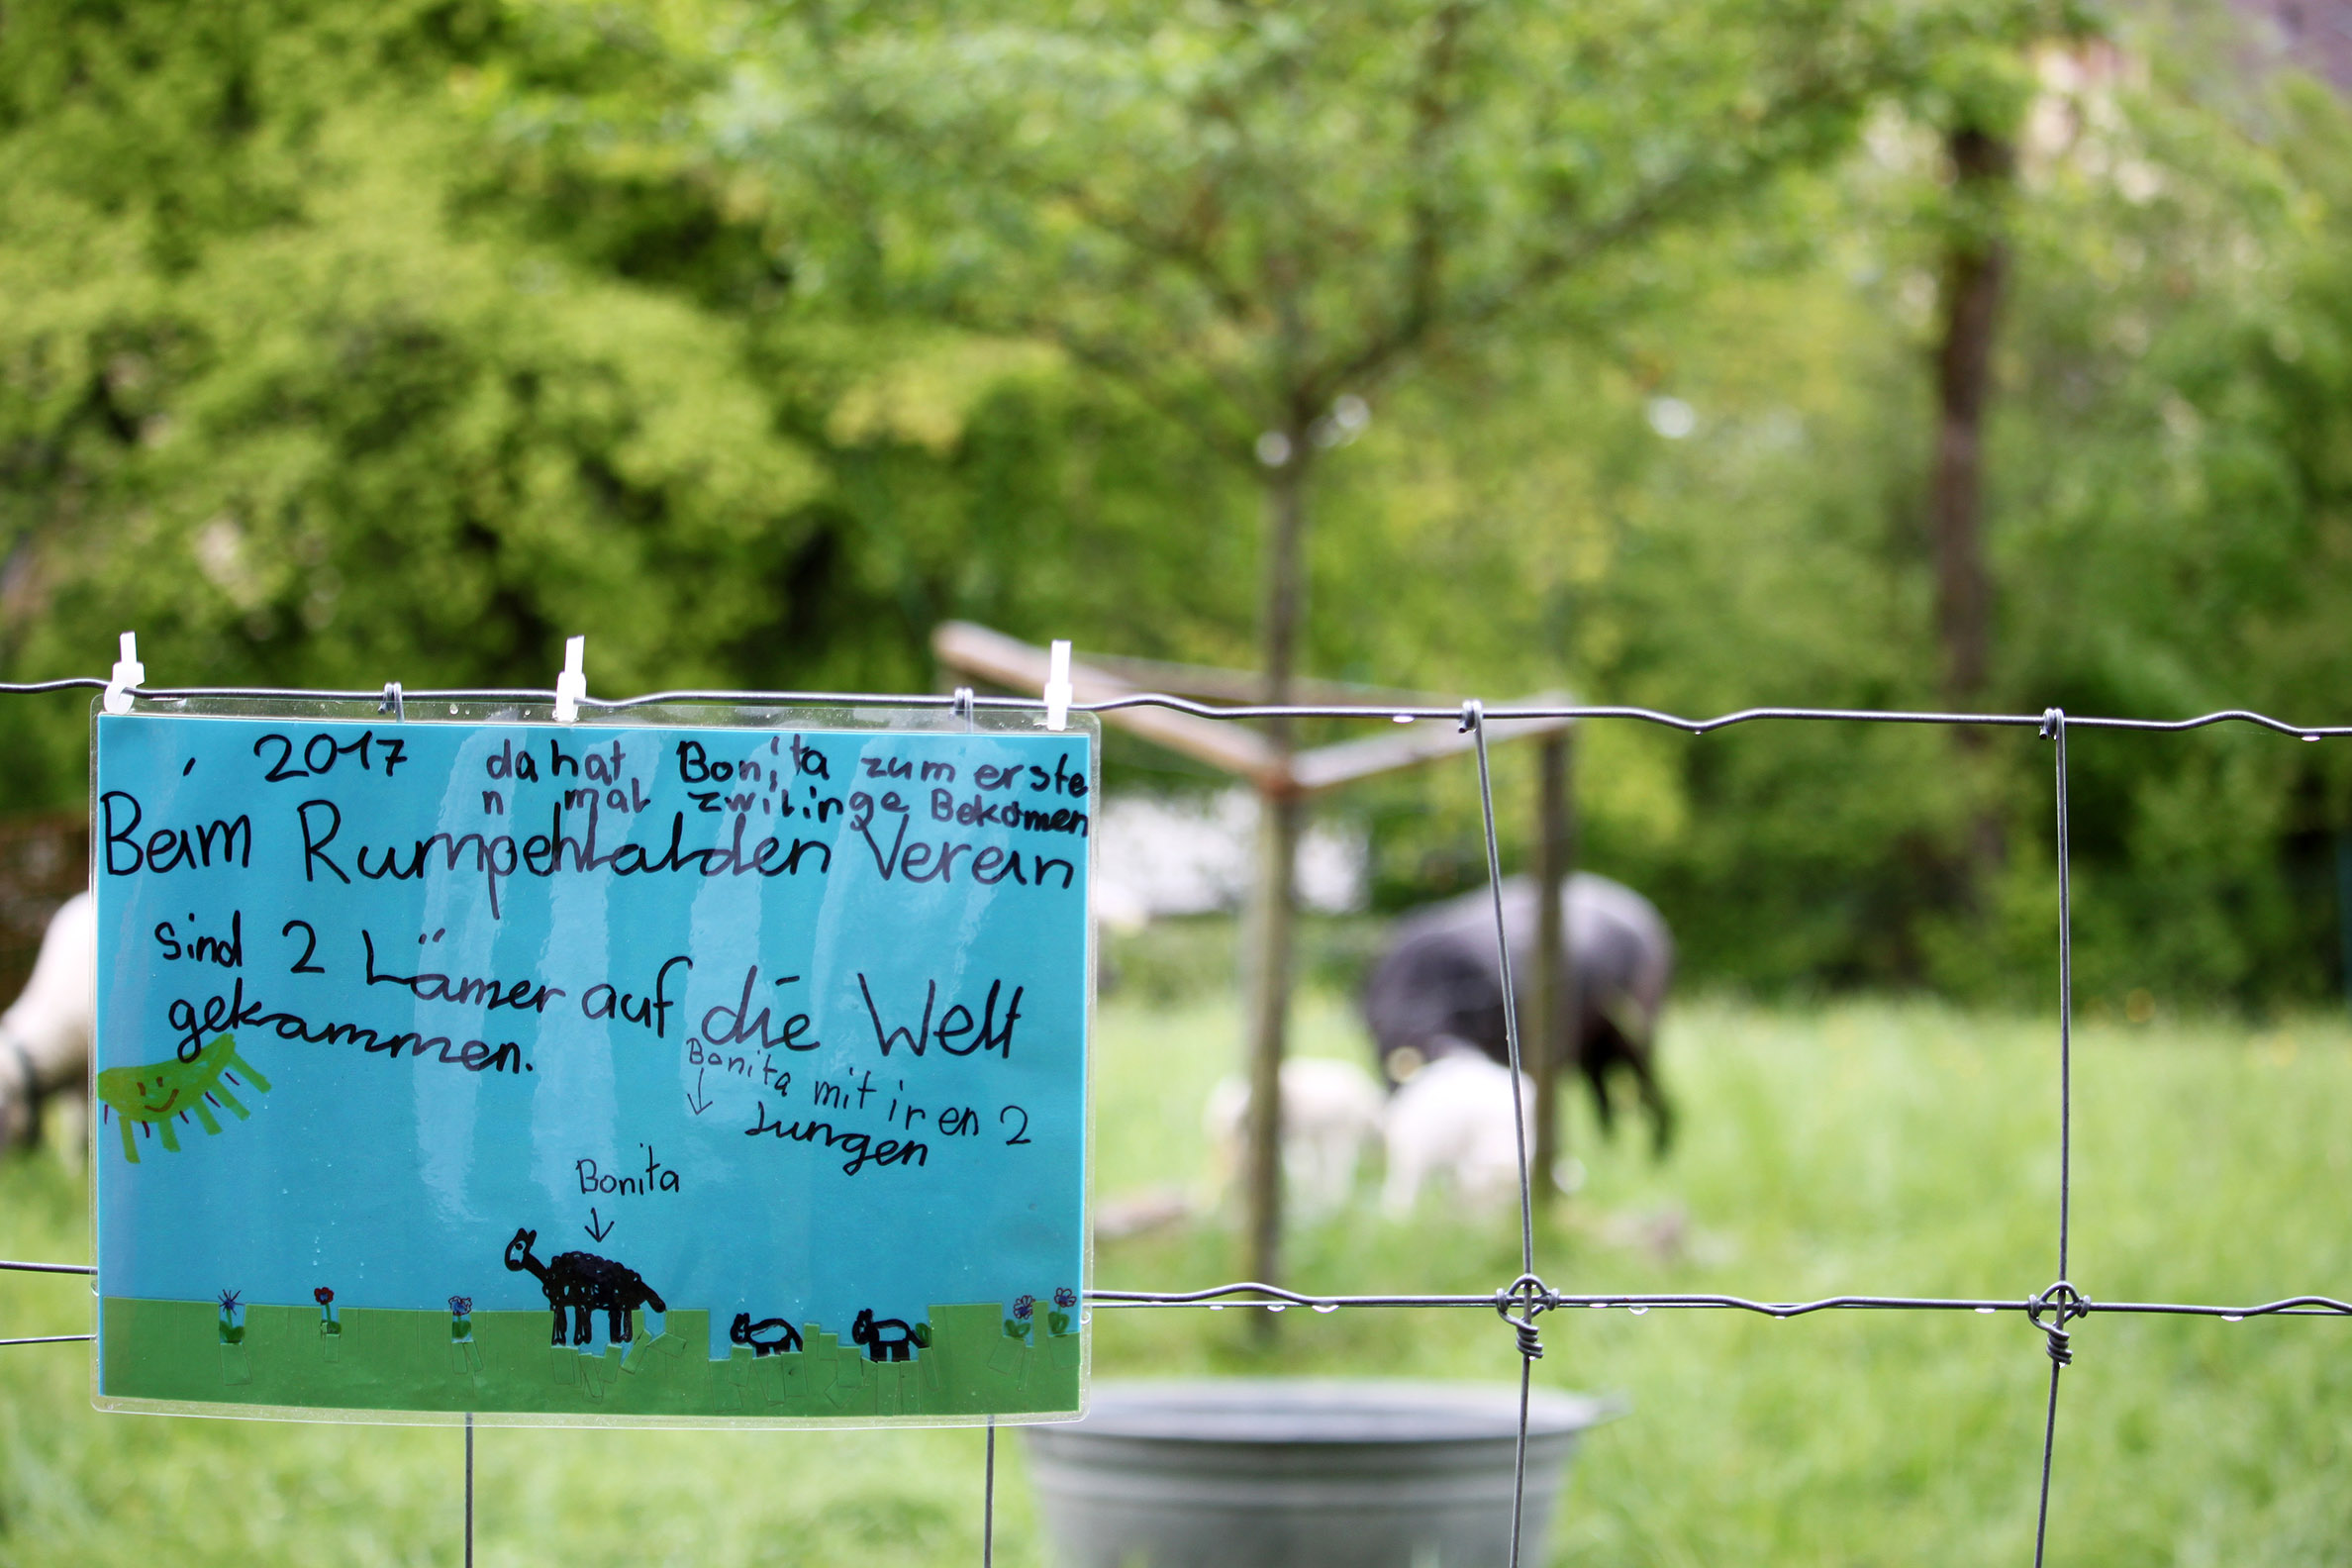 2017 da hat Bonita zum erste
n mal zwilinge Bekomen
Beim Rumpehlalden Verein
sind 2 Lämer auf die Welt
gekammen.
Bonita mit iren 2
Jungen
Bonita